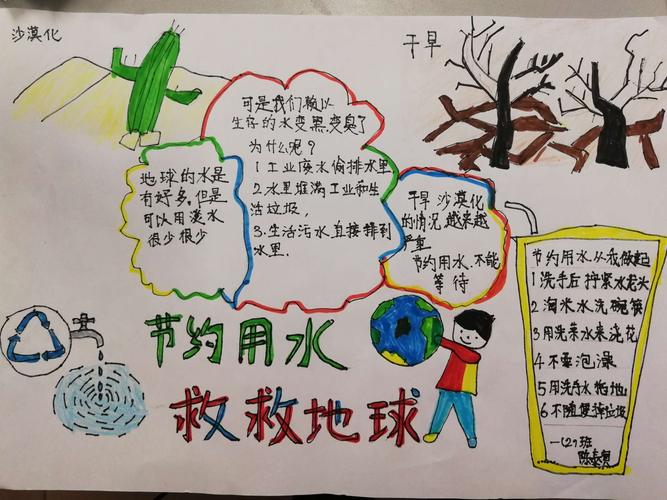 沙漠化
干旱
可是我们赖以
生存的水变黑变臭了
为什么呢？
1 工业废水偷排水里
2.水里堆满工业和生
活垃圾，
3.生活污水直接排到
水里.
地球的水是
有好多，但是
可以用淡水
很少很少
干旱 沙漠化
的情况越来越
严重
节约用水.不能
等待
节约用水
救救地球
节约用水从我做起
1 洗手后拧紧水龙头
2 淘米水洗碗筷
3 用洗菜水来浇花
4 不要泡澡
5 用洗手水拖地
6 不随便掉垃圾
班
陈